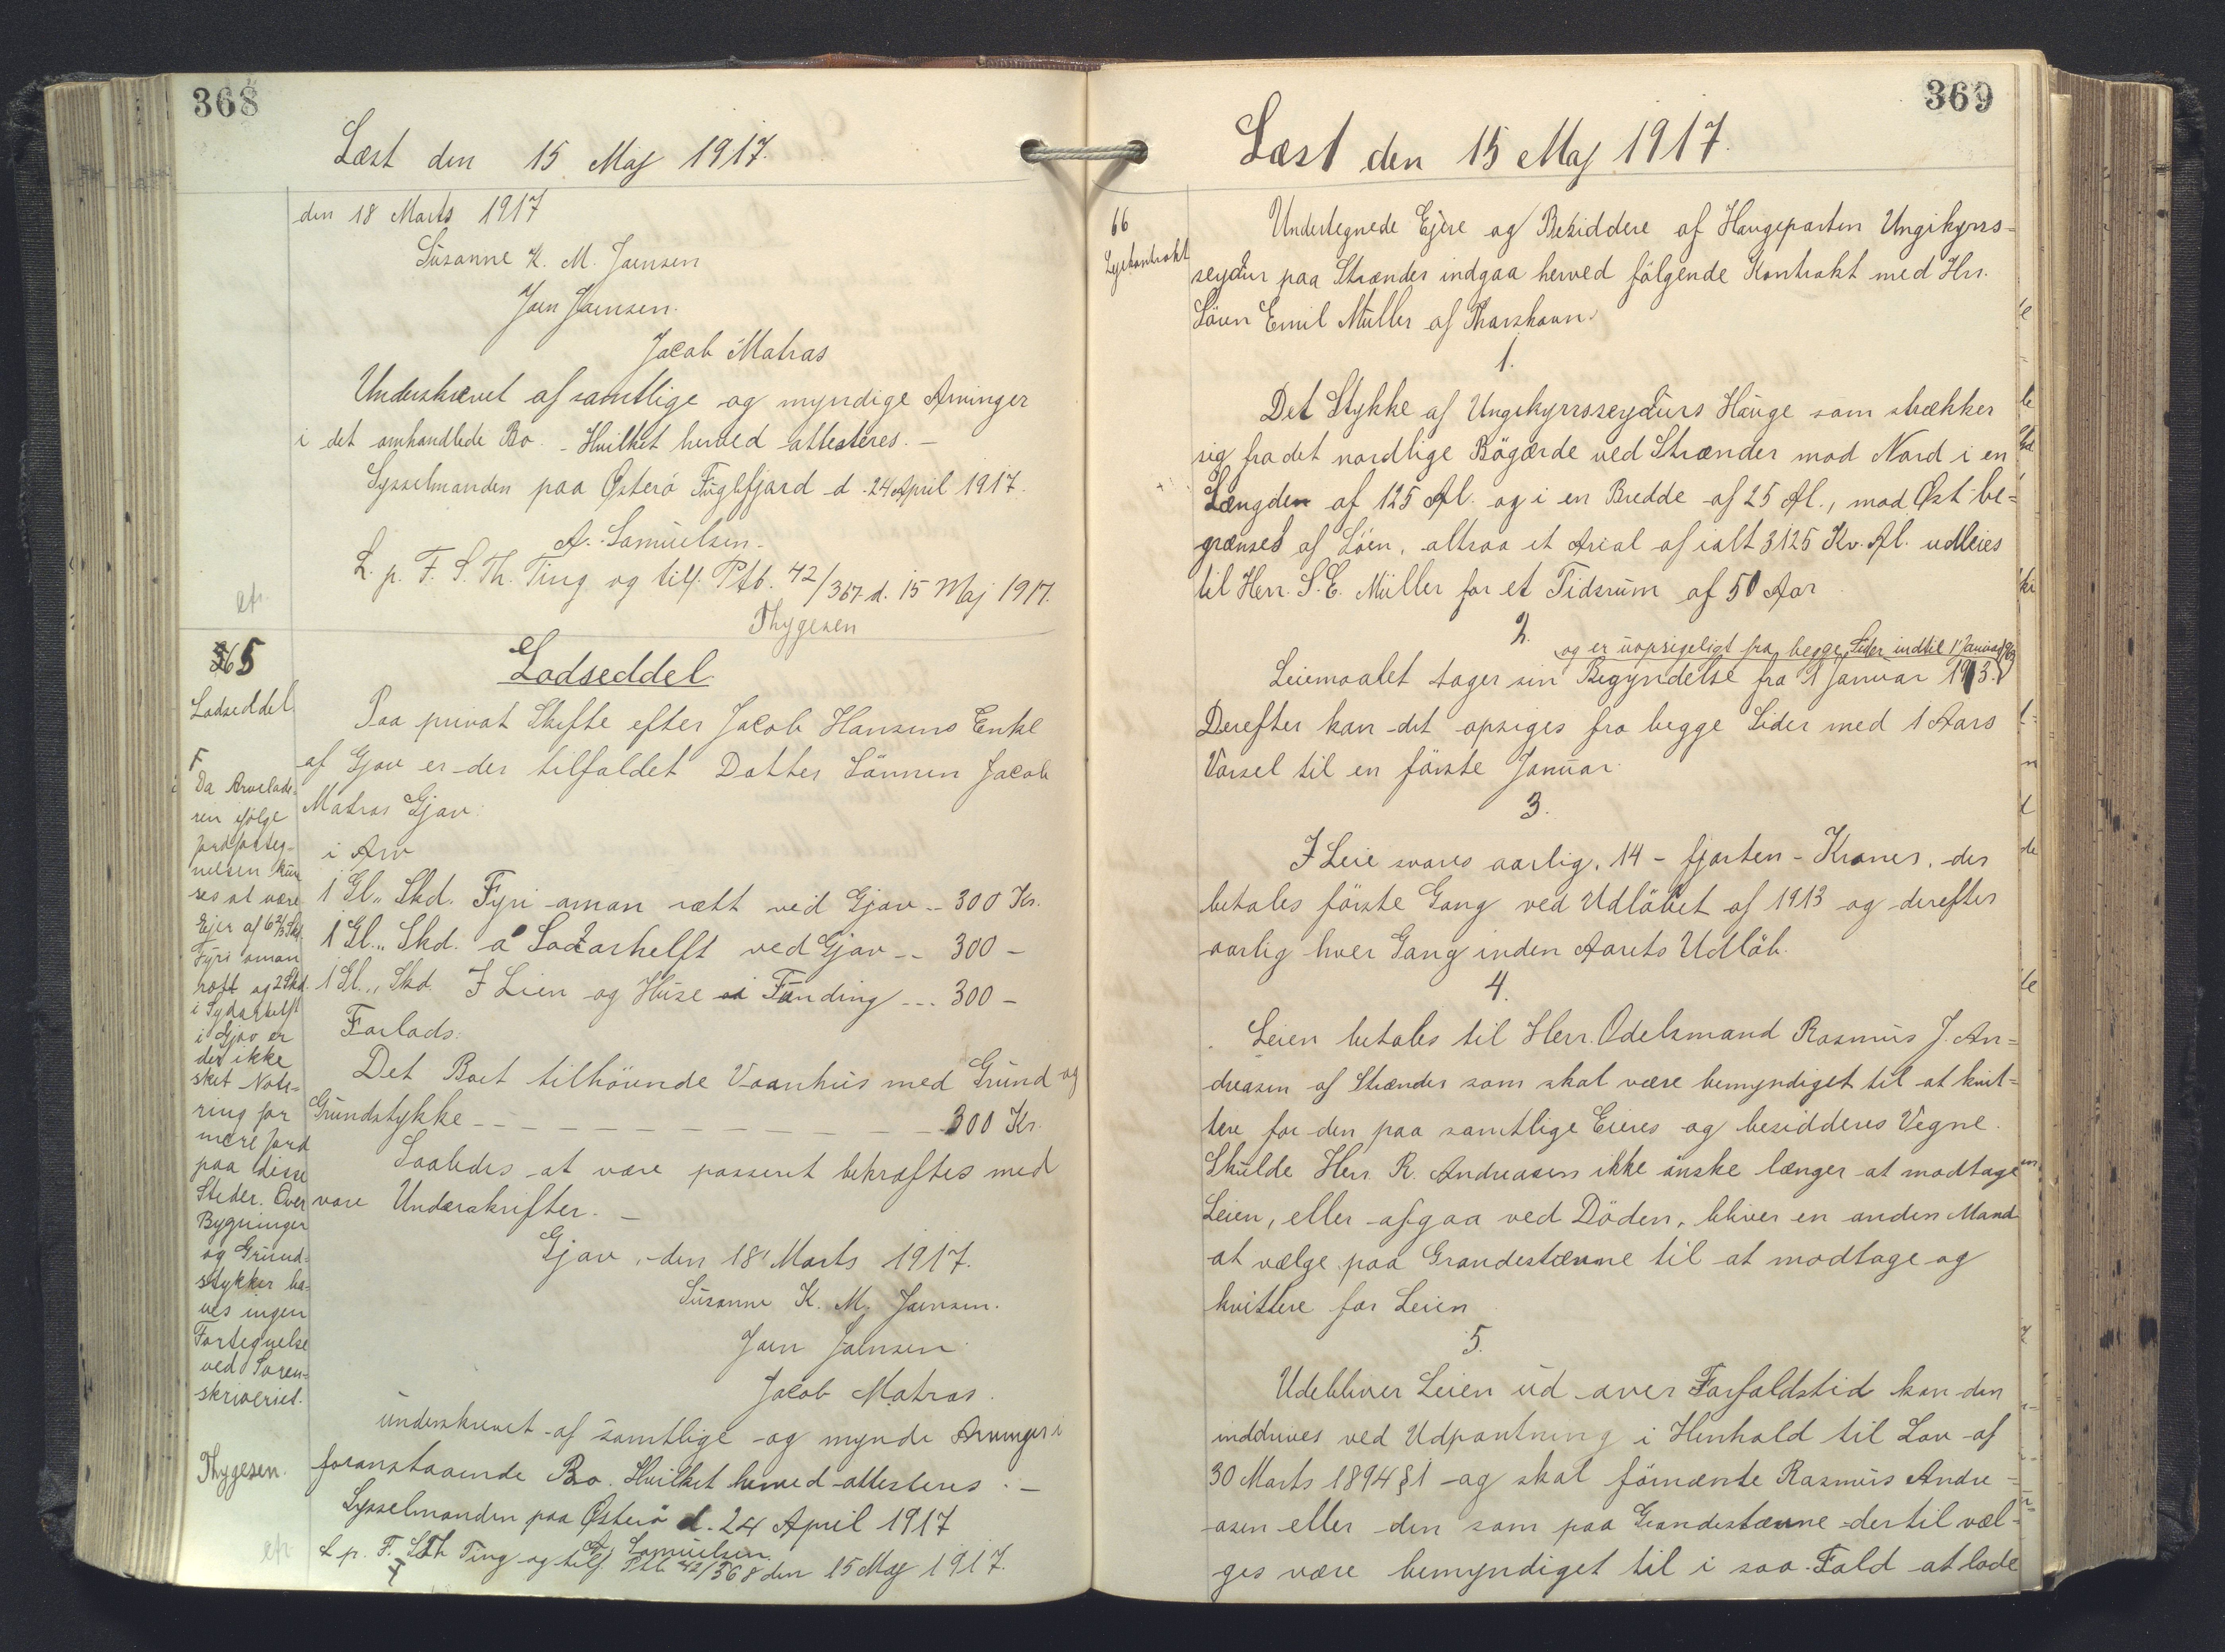 368
Læst den 15 Maj 1917.
den 18 Marts 1917
Susanne K. M. Joensen
Joen Joensen.
Jacob Matras
Underskrevet af samtlige og myndige Arvinger
i det omhandlede Bo. - Hvilket herved attesteres. -
Sysselmanden paa Østerö Fuglefjord d. 24 April 1917.
A. Samuelsen.
L. p. F. S. Th. Ting og tilf. Ptb. 42/367 d. 15 Maj 1917.
Thygesen
65
Lodseddel
Lodseddel
Paa privat Skifte efter Jacob Hansens Enke
af Gjov er der tilfaldet Datter Sönnen Jacob
Matras Gjov.
i Arv
1 Gl. Skd. Fyri oman rætt ved Gjov -- 300 Kr.
1 Gl. Skd. a ved Gjov -- 300 -
1 Gl. Skd. I Lien og Huse i Funding --- 300 -
Forlods.
Det Boet tilhörende Vaanhus med Grund og
Grundstykke - - - 300 Kr.
Saaledes at være passeret bekræftes med
vore Underskrifter. -
Gjov, den 18 Marts 1917.
Susanne K. M. Joensen.
Joen Joensen
Jacob Matras.
underskrevet af samtlige og mynde Arvinger i
foranstaaende Bo. Hvilket herved attesteres. -
Sysselmanden paa Østerö d. 24 April 1917
A. Samuelsen.
L. p. F. S Th Ting og tilf. Ptb. 42/368 den 15 Maj 1917.
F
Da Arvelade-
ren ifølge
Jordforteg-
nelsen kun
ses at være
Ejer af 6 2/3 Skd.
Fyri oman
rætt og 2 Skd.
i
i Gjov er
der ikke
sket Note-
ring for
mere Jord
paa disse
Steder. Over
Bygninger
og Grund-
stykker ha-
ves ingen
Fortegnelse
ved Soren-
skriveriet.
Thygesen.
369
Læst den 15 Maj 1917.
66
Lejekontrakt
Undertegnede Ejere og Besiddere af Haugeparten Ungikyrs-
seydur paa Strænder indgaa herved fölgende Kontrakt med Hrr.
Sören Emil Müller af Thorshavn.
1.
Det Stykke af Ungekyrsseydurs Hauge som strækker
sig fra det nordlige Bögærde ved Strænder mod Nord i en
Længden af 125 Al. og i en Bredde af 25 Al., mod Øst be-
grænset af Söen, altsaa et Areal af ialt 3125 Kv. Al. udleies
til Herr. S. E. Müller for et Tidsrum af 50 Aar
2.
og er uopsigeligt fra begge Sider indtil 1 Januar 1963
Leiemaalet tager sin Begyndelse fra 1 Januar 1913.
Derefter kan det opsiges fra begge Sider med 1 Aars
Varsel til en förste Januar.
3.
I Leie svares aarlig, 14 - fjorten - Kroner, der
betales förste Gang ved Udlöbet af 1913 og derefter
aarlig hver Gang inden Aarets Udlöb.
4.
Leien betales til Herr. Odelsmand Rasmus J. An-
dreasen af Strænder som skal være bemyndiget til at kvit-
tere for den paa samtlige Eieres og besidderes Vegne.
Skulde Herr. R. Andreasen ikke önske længer at modtage
Leien, eller afgaa ved Döden, bliver en anden Mand
at vælge paa Grandestævne til at modtage og
kvittere for Leien
5.
Udebliver Leien ud over Forfaldstid kan den
inddrives ved Udpantning i Henhold til Lov af
30 Marts 1894 § 1 og skal förnævnte Rasmus Andre-
asen eller den som paa Grandestævne dertil væl-
ges være bemyndiget til i saa Fald at lade